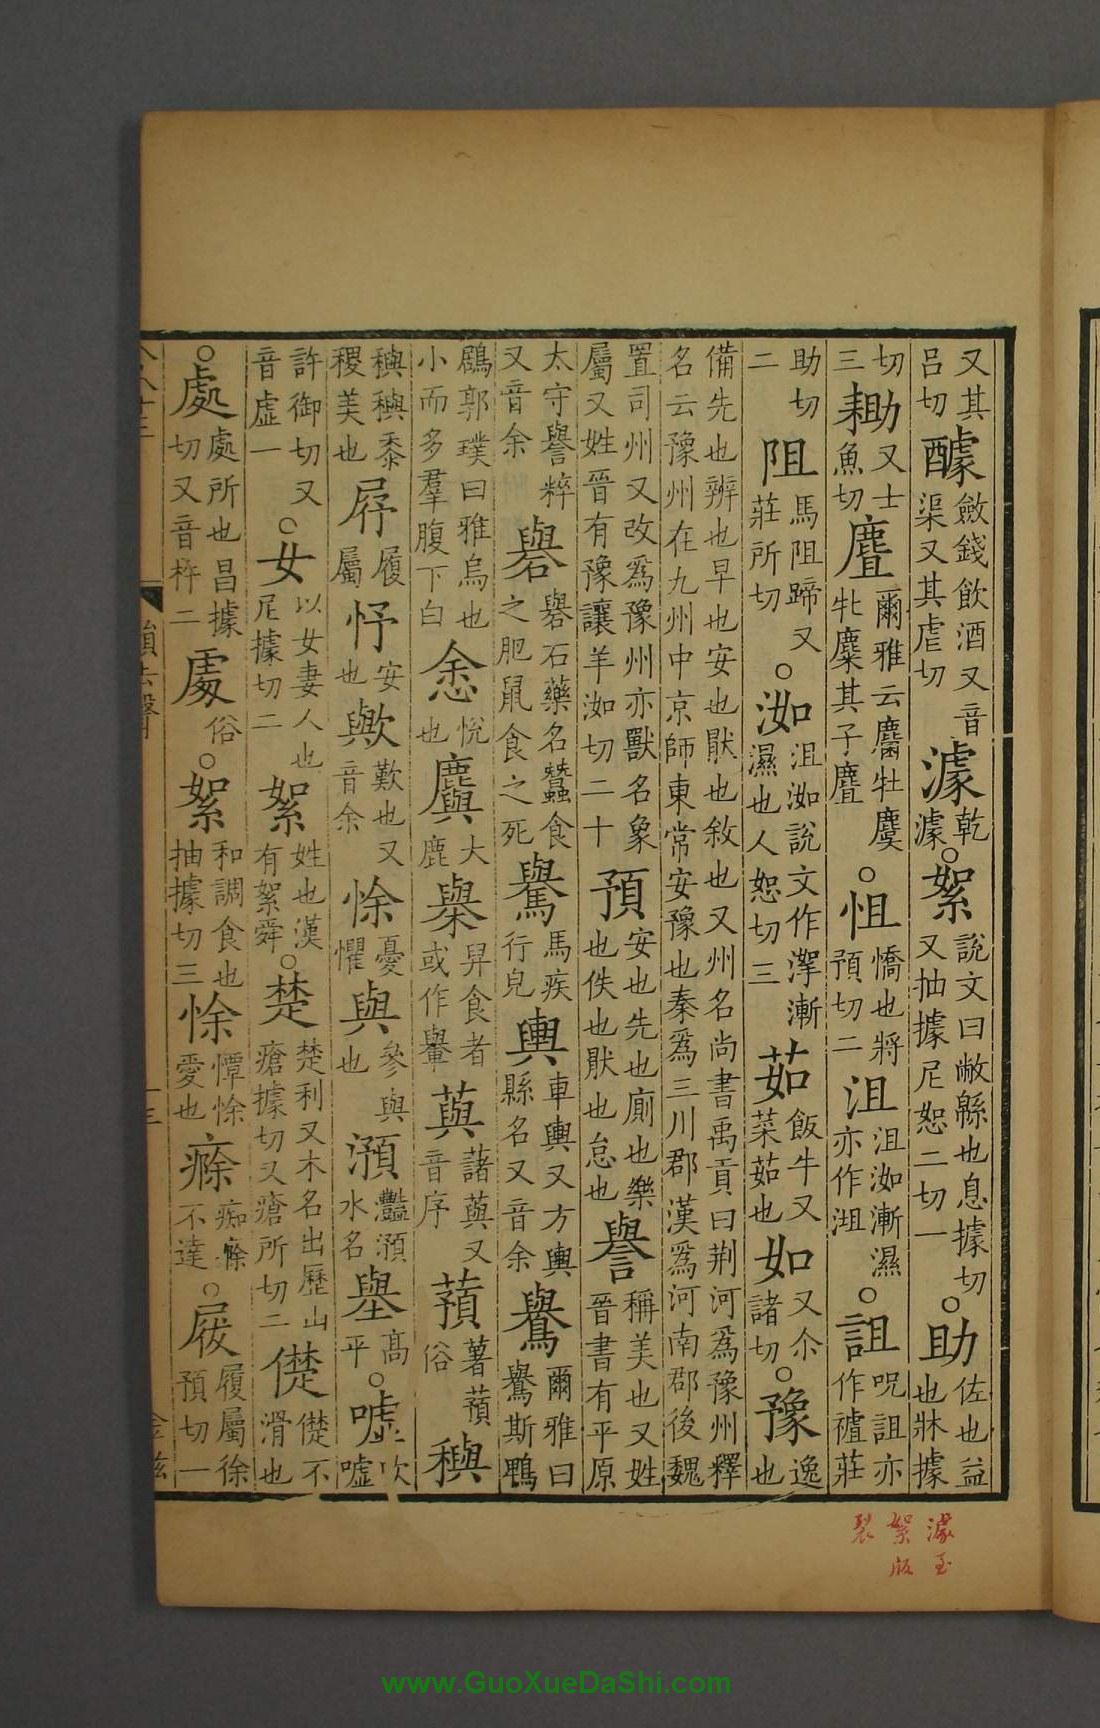 又其呂切醵斂錢飲酒又音渠又其虐切澽乾澽○絮說文曰敝緜也息據切又抽據尼恕二切一○助佐也益也牀據
切三耡又士魚切䴞爾雅云麕牡麌牝麜其子䴞○怚憍也將預切二沮沮洳漸濕亦作㳛○詛呪詛亦作䄏莊
助切二阻馬阻蹄又莊所切○洳沮洳說文作澤漸濕也人恕切三茹飯牛又菜茹也如又尒諸切○豫逸也
備先也辨也早也安也猒也敘也又州名尚書禹貢曰荆河爲豫州釋名云豫州在九州中京師東常安豫也秦爲三川郡漢爲河南郡後魏
置司州又改爲豫州亦獸名象屬又姓晉有豫讓羊洳切二十預安也先也廁也樂也佚也猒也怠也譽稱美也又姓晉書有平原
太守譽粹又音余礜礜石藥名蠶食之肥鼠食之死䮙馬疾行皃輿車輿又方輿縣名又音余鸒爾雅曰鸒斯鵯
鶋郭璞曰雅烏也小而多羣腹下白悆悅也䴡大鹿𣘏舁食者或作轝蕷藷蕷又音序蕷薯蕷俗䅷
䅷䅷黍稷美也㞒履屬忬安也歟歎也又音余悇憂懼與參與也澦灎澦水名𡔎高平○嘘吹嘘
許御切又音虛一○女以女妻人也尼據切二絮姓也漢有絮舜○楚楚利又木名出歷山瘡據切又瘡所切二憷憷不滑也
○處處所也昌據切又音杵二䖏俗○絮和調食也抽據切三悇憛悇愛也瘀痴瘀不達○屐履屬徐預切一
韻去聲
十三
金滋
澽 絮 裂
至 版
www.GuoXueDaShi.com